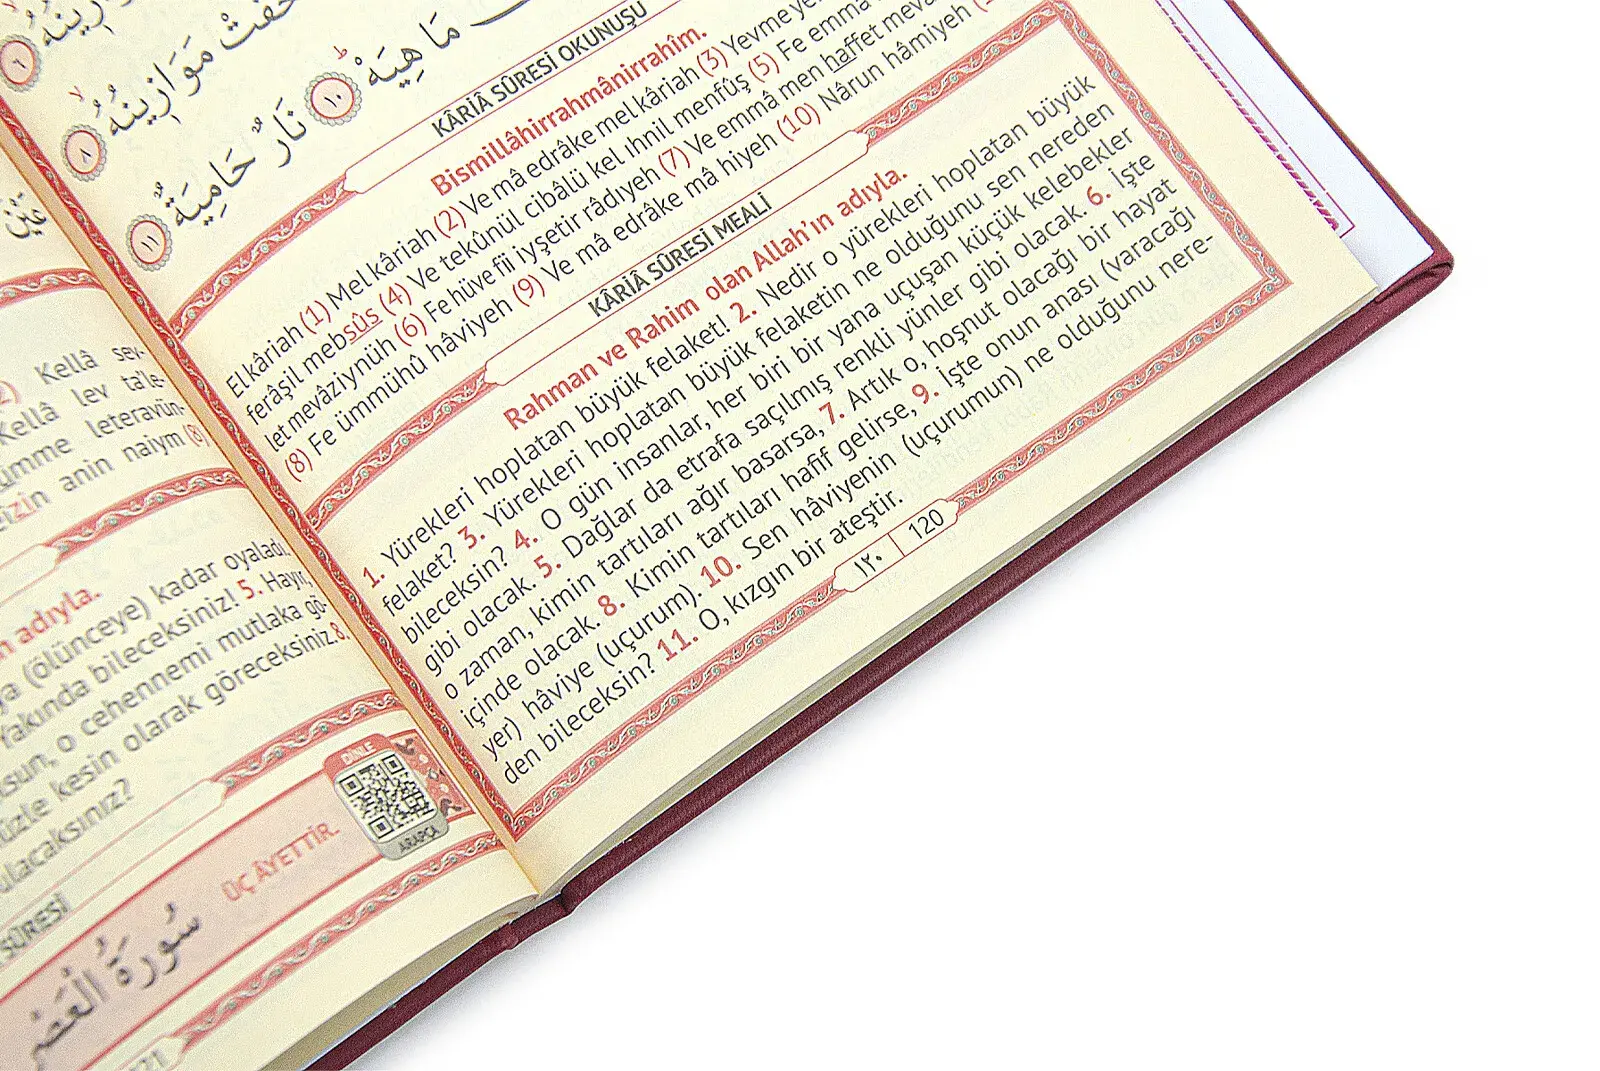 مَوَازِينُهُ
٦
خَفَّتْ مَوَازِينُهُ
٨
مَا هِيَهْ
١٠
نَارٌ حَامِيَةٌ
١١
KÂRİÂ SÛRESİ OKUNUŞU
Bismillâhirrahmânirrahîm.
Elkâriah (1) Mel kâriah (2) Ve mâ edrâke mel kâriah (3) Yevme
ferâşil mebsûs (4) Ve tekûnül cibâlü kel ıhnil menfûş (5) Fe emma
let mevâziynüh (6) Fe hüve fii iyşetir râdıyeh (7) Ve emmâ men haffet
(8) Fe ümmühû hâviyeh (9) Ve mâ edrâke mâ hiyeh (10) Nârun hâmiyeh
KÂRİÂ SÛRESİ MEALİ
Rahman ve Rahim olan Allah'ın adıyla.
1. Yürekleri hoplatan büyük felaket! 2. Nedir o yürekleri hoplatan büyük
felaket? 3. Yürekleri hoplatan büyük felaketin ne olduğunu sen nereden
bileceksin? 4. O gün insanlar, her biri bir yana uçuşan küçük kelebekler
gibi olacak. 5. Dağlar da etrafa saçılmış renkli yünler gibi olacak. 6. İşte
o zaman, kimin tartıları ağır basarsa, 7. Artık o, hoşnut olacağı bir hayat
içinde olacak. 8. Kimin tartıları hafif gelirse, 9. İşte onun anası (varacağı
yer) hâviye (uçurum). 10. Sen hâviyenin (uçurumun) ne olduğunu nere-
den bileceksin? 11. O, kızgın bir ateştir.
١٢٠ | 120
Kellâ sev-
Kellâ lev ta'le-
leteravün-
anin naiym (8)
adıyla.
(ölünceye) kadar oyaladı.
Yakında bileceksiniz! 5. Hayır,
o cehennemi mutlaka gö-
kesin olarak göreceksiniz 8.
SÛRESİ
ÜÇ ÂYETTİR.
DİNLE
ARAPÇA
سُورَةُ الْعَصْرِ